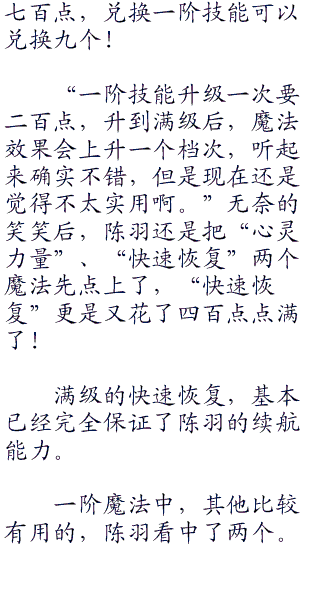 七百点，兑换一阶技能可以
兑换九个！
“一阶技能升级一次要
二百点，升到满级后，魔法
效果会上升一个档次，听起
来确实不错，但是现在还是
觉得不太实用啊。”无奈的
笑笑后，陈羽还是把“心灵
力量”、“快速恢复”两个
魔法先点上了，“快速恢
复”更是又花了四百点点满
了！
满级的快速恢复，基本
已经完全保证了陈羽的续航
能力。
一阶魔法中，其他比较
有用的，陈羽看中了两个。